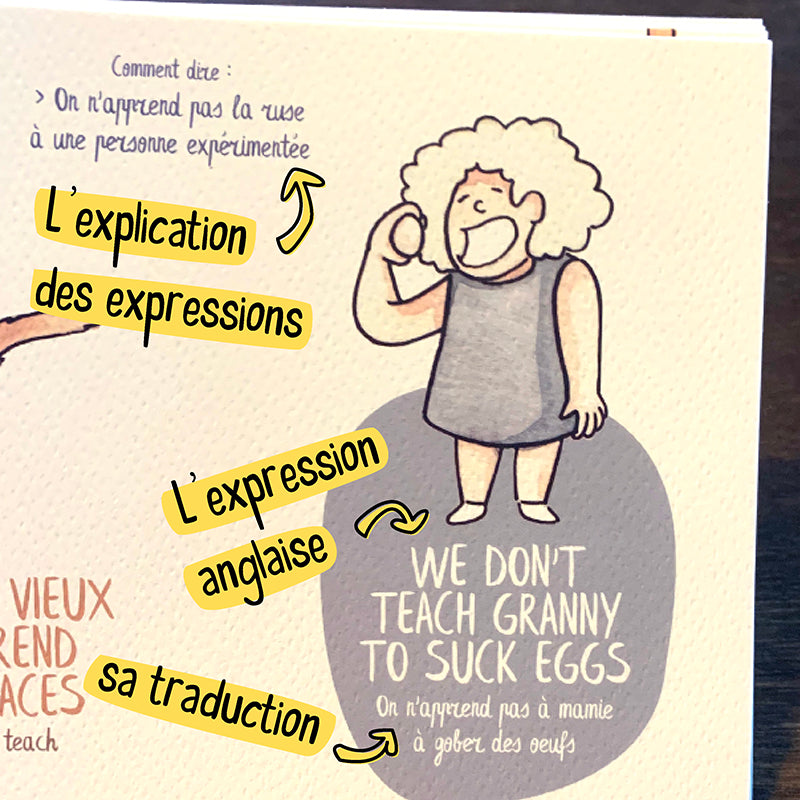 Comment dire :
> On n'apprend pas la ruse
à une personne expérimentée
L'explication
des expressions
L'expression
anglaise
WE DON'T
TEACH GRANNY
TO SUCK EGGS
On n'apprend pas à mamie
à gober des oeufs
VIEUX
REND
ACES
teach
sa traduction